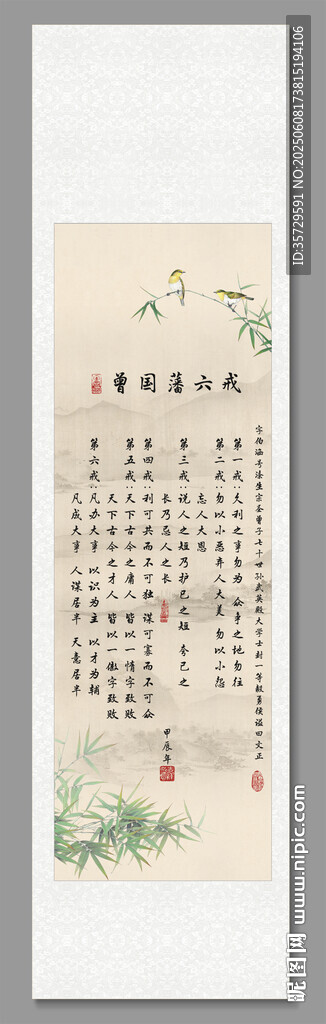 曾国藩六戒
字伯涵号涤生宗圣曾子七十世孙武英殿大学士封一等毅勇侯谥曰文正
第一戒：久利之事勿为 众争之地勿往
第二戒：勿以小恶弃人大美 勿以小怨
忘人大恩
第三戒：说人之短乃护己之短 夸己之
长乃忌人之长
第四戒：利可共而不可独 谋可寡而不可众
第五戒：天下古今之庸人 皆以一惰字致败
天下古今之才人 皆以一傲字致败
第六戒：凡办大事 以识为主 以才为辅
凡成大事 人谋居半 天意居半
甲辰年
ID:35729591 NO:20250608173815194106
昵图网 www.nipic.com